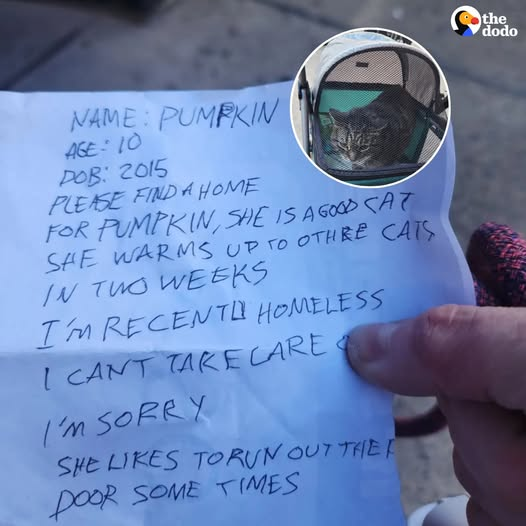 the
dodo
NAME: PUMPKIN
AGE: 10
DOB: 2015
PLEASE FIND A HOME
FOR PUMPKIN, SHE IS A GOOD CAT
SHE WARMS UP TO OTHRE CATS
IN TWO WEEKS
I'M RECENTLL HOMELESS
I CANT TAKE CARE
I'M SORRY
SHE LIKES TO RUN OUT THER
DOOR SOME TIMES